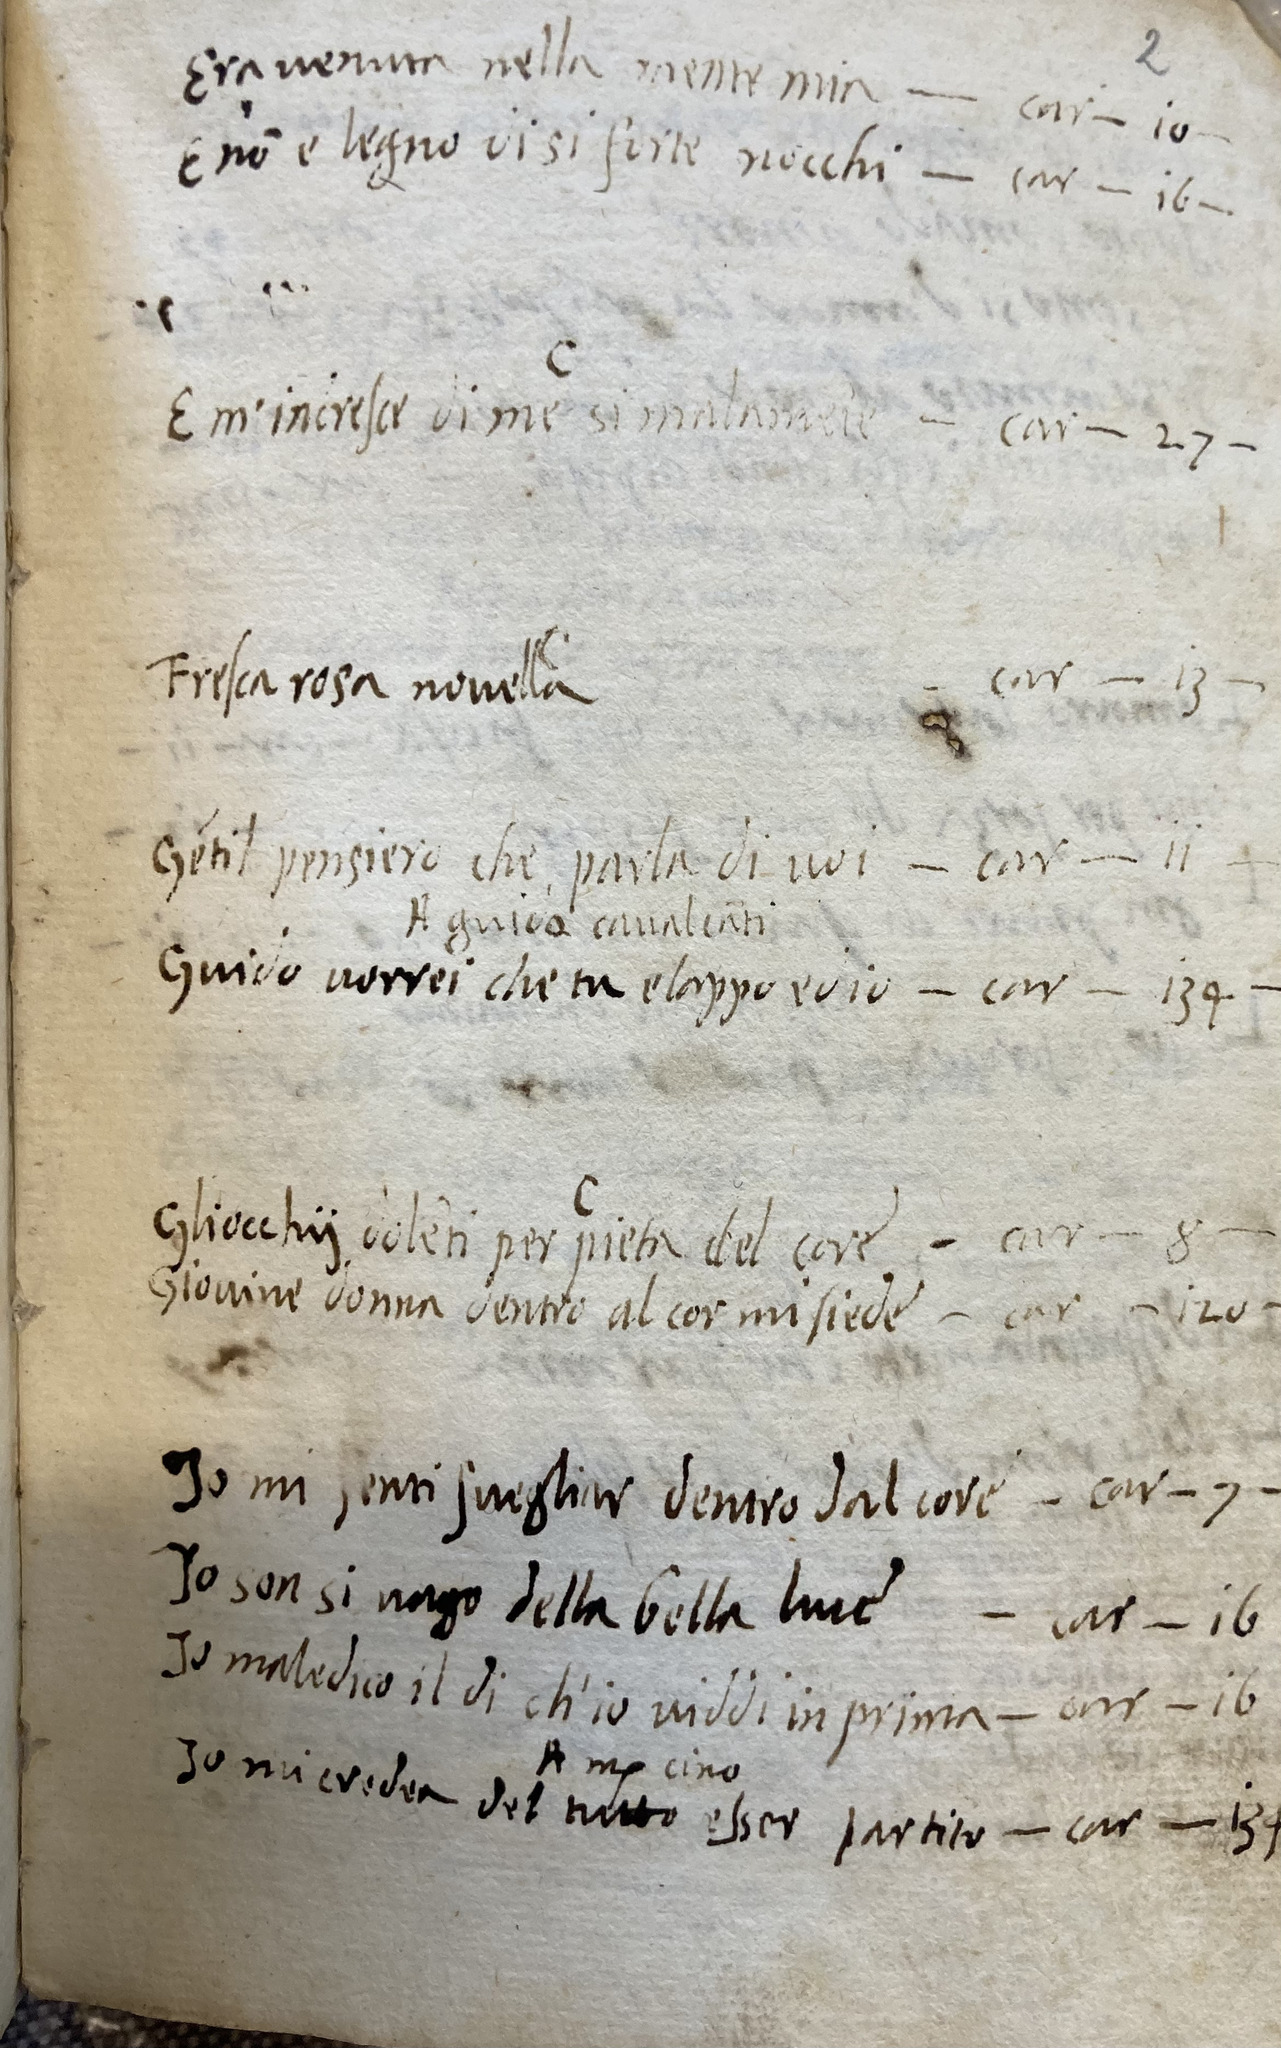 2
Era venuta nella mente mia — car — 10 —
E nō e legno di si forte nocchi — car — 16 —
C
E m'incresce di me si malamēte — car — 27 —
C
Fresca rosa novella — car — 13 —
Gētil pensiero che parla di voi — car — 11
A guido cavalcāti
Guido vorrei che tu e lappo ed io — car — 134 —
C
Gliocchij dolēti per pieta del core — car — 8 —
Giovine donna dentro al cor mi siede — car — 120 —
Io mi senti svegliar dentro dal core — car — 7 —
Io son si vago della bella luce — car — 16
Io maledico il di ch'io viddi in prima — car — 16
A mꝭ cino
Io mi credea del tutto esser partito — car — 134